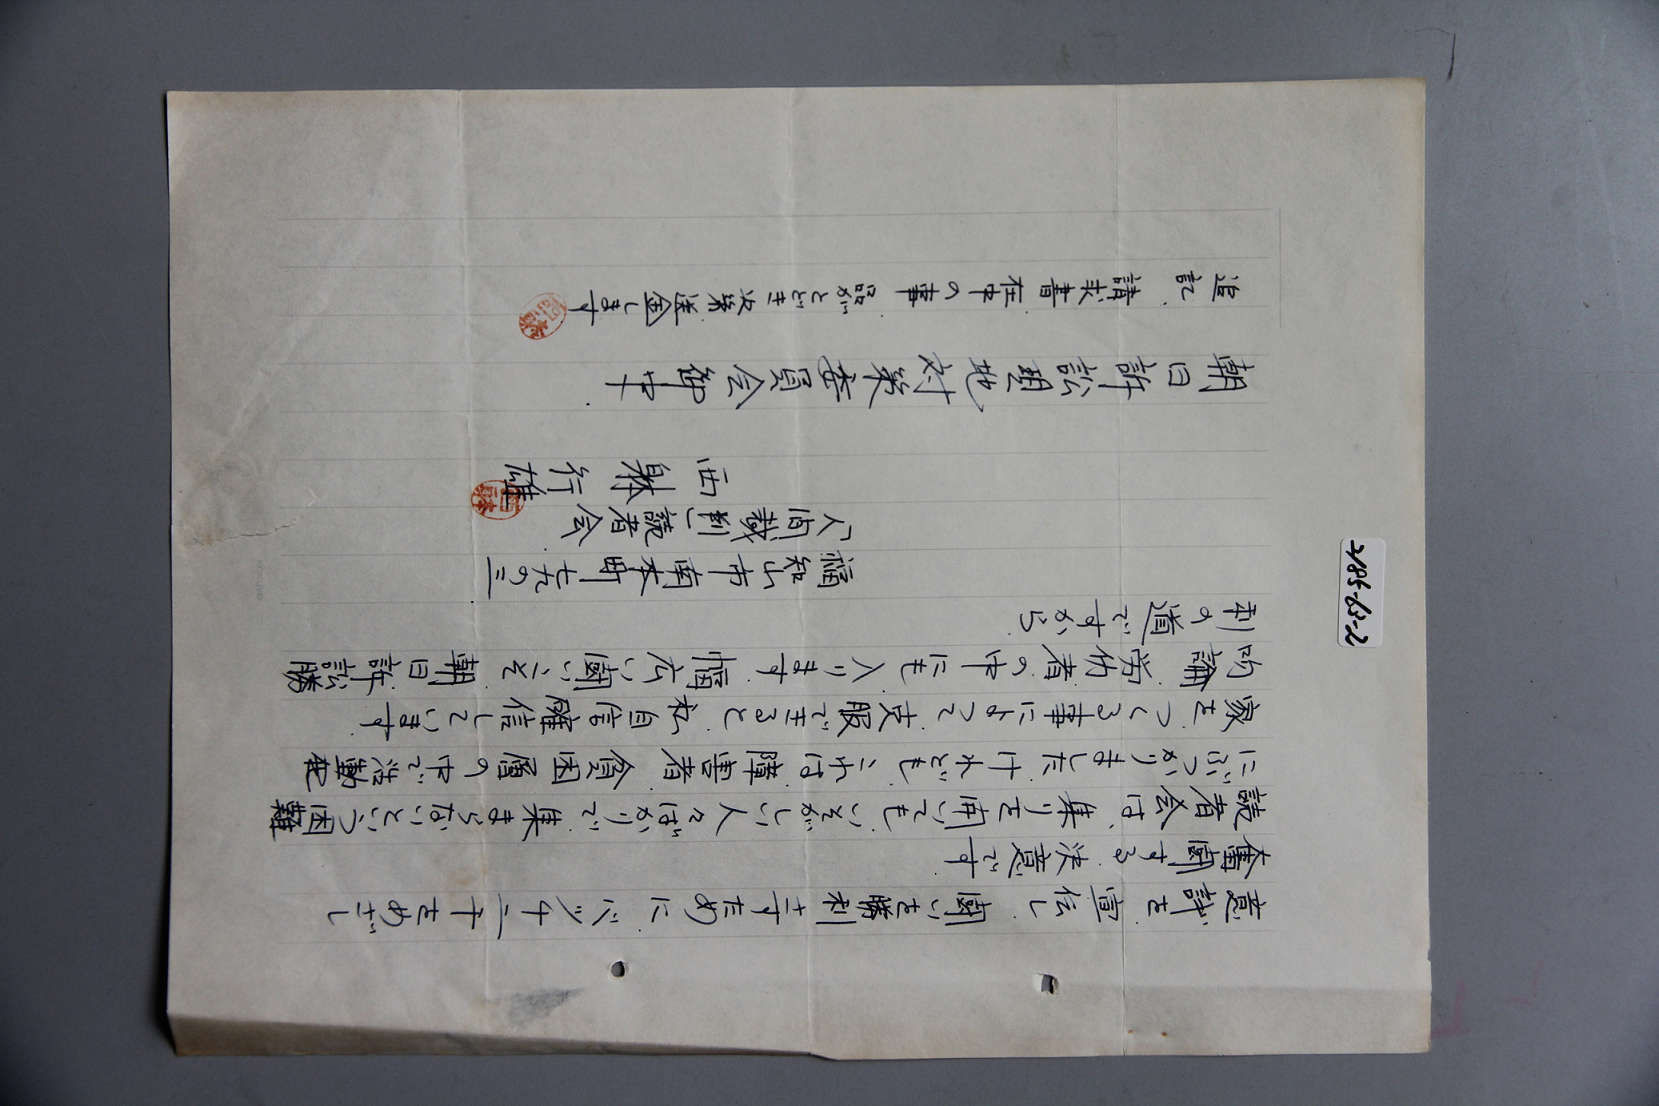 意評を宣伝し、闘いを勝利さすためにバッチ二千をめざし
奮闘する決意です
読者会は、集りを開いてもいそがしい人々ばかりで集まらないという困難
にぶつかりましたけれどもこれは障害者、貧困層の中で活動
家をつくる事によって支服できると私自信確信しています
勿論労仂者の中にも入ります 幅広い闘いこそ朝日訴訟勝
利の道ですから
福知山市南本町七九の三
「人間裁判」読者会
西躰行雄
西躰
朝日訴訟現地対策委員会御中
追記、請求書在中の事 品がとどき次第送金します
2185-65-2